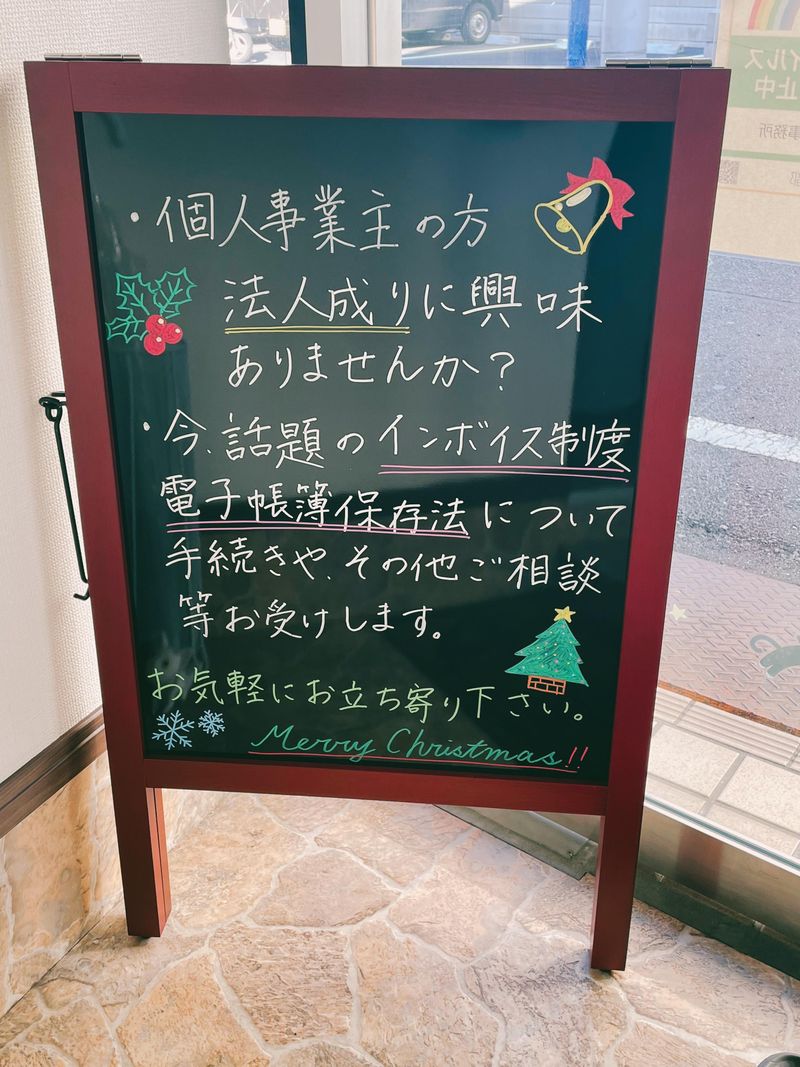 ・個人事業主の方
法人成りに興味
ありませんか?
・今、話題のインボイス制度
電子帳簿保存法について
手続きや、その他ご相談
等お受けします。
お気軽にお立ち寄り下さい。
Merry Christmas!!
イルス
止中
事務所